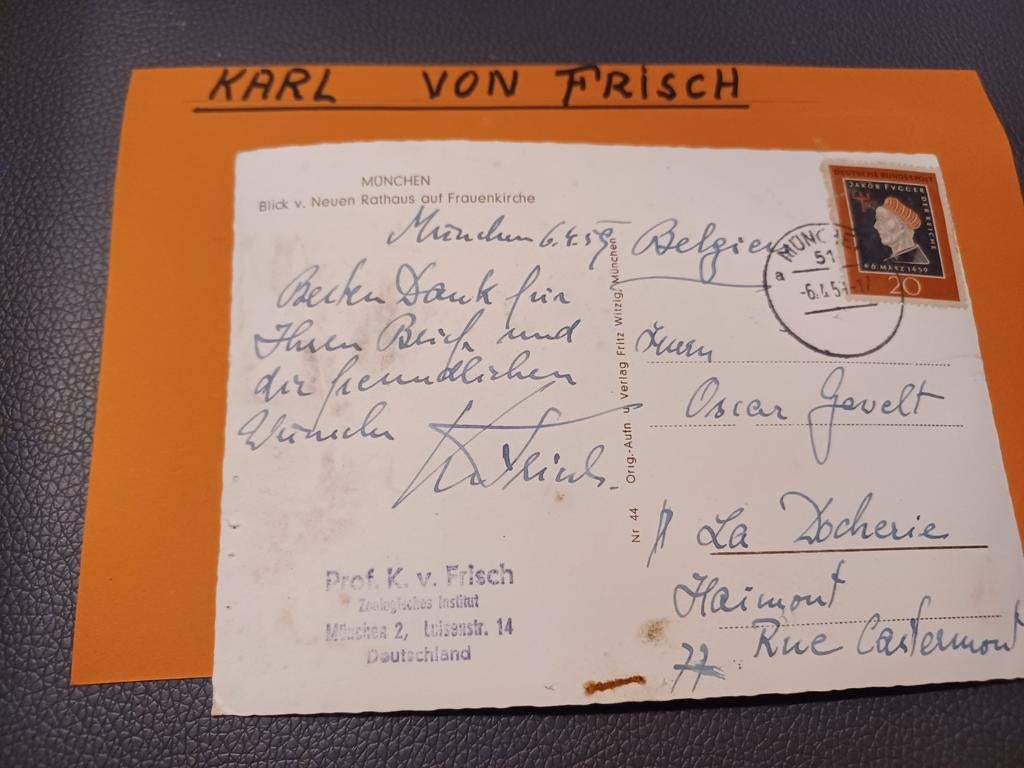 KARL VON FRISCH
MÜNCHEN
Blick v. Neuen Rathaus auf Frauenkirche
München 6.4.59
Besten Dank für
Ihren Brief und
die freundlichen
Wünsche
K. v. Frisch.
Prof. K. v. Frisch
Zoologisches Institut
München 2, Luisenstr. 14
Deutschland
Nr 44 Orig.-Aufn. u. Verlag Fritz Witzig, München
DEUTSCHE BUNDESPOST
JAKOB FVGGER DER REICHE
*6.MÄRZ 1459
20
MÜNCHEN
51
a
-6.4.59-17
Belgien
Herrn
Oscar Gevelt
La Docherie
Haimont
77 Rue Castermont